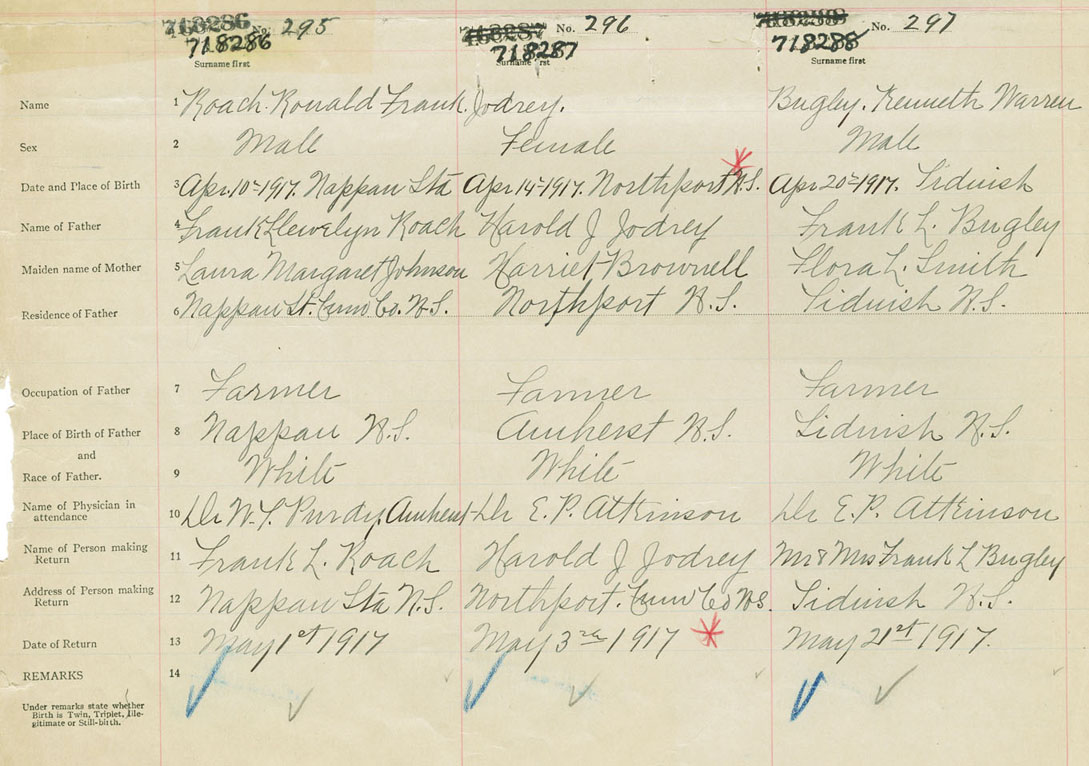 718286 No. 295 718287 No. 296 718288 No. 297
718286 718287 718288
Surname first Surname first Surname first
Name 1 Roach. Ronald Frank. Jodrey. Bugley. Kenneth Warren
Sex 2 Male Female Male
Date and Place of Birth 3 Apr. 10th 1917. Nappan Sta Apr 14th 1917. Northport N.S. Apr 20th 1917. Tidnish
Name of Father 4 Frank Llewelyn Roach Harold J Jodrey Frank L. Bugley
Maiden name of Mother 5 Laura Margaret Johnson Harriet Brownell Flora L. Smith
Residence of Father 6 Nappan St. Cum. Co. N.S. Northport N.S. Tidnish N.S.
Occupation of Father 7 Farmer Farmer Farmer
Place of Birth of Father 8 Nappan N.S. Amherst N.S. Tidnish N.S.
and
Race of Father. 9 White White White
Name of Physician in
attendance 10 Dr W. T. Purdy, Amherst Dr E. P. Atkinson Dr E. P. Atkinson
Name of Person making
Return 11 Frank L. Roach Harold J Jodrey Mr & Mrs Frank L Bugley
Address of Person making
Return 12 Nappan Sta N.S. Northport. Cum Co N.S. Tidnish N.S.
Date of Return 13 May 1st 1917 May 3rd 1917 May 21st 1917.
REMARKS 14
Under remarks state whether
Birth is Twin, Triplet, Ille-
gitimate or Still-birth.